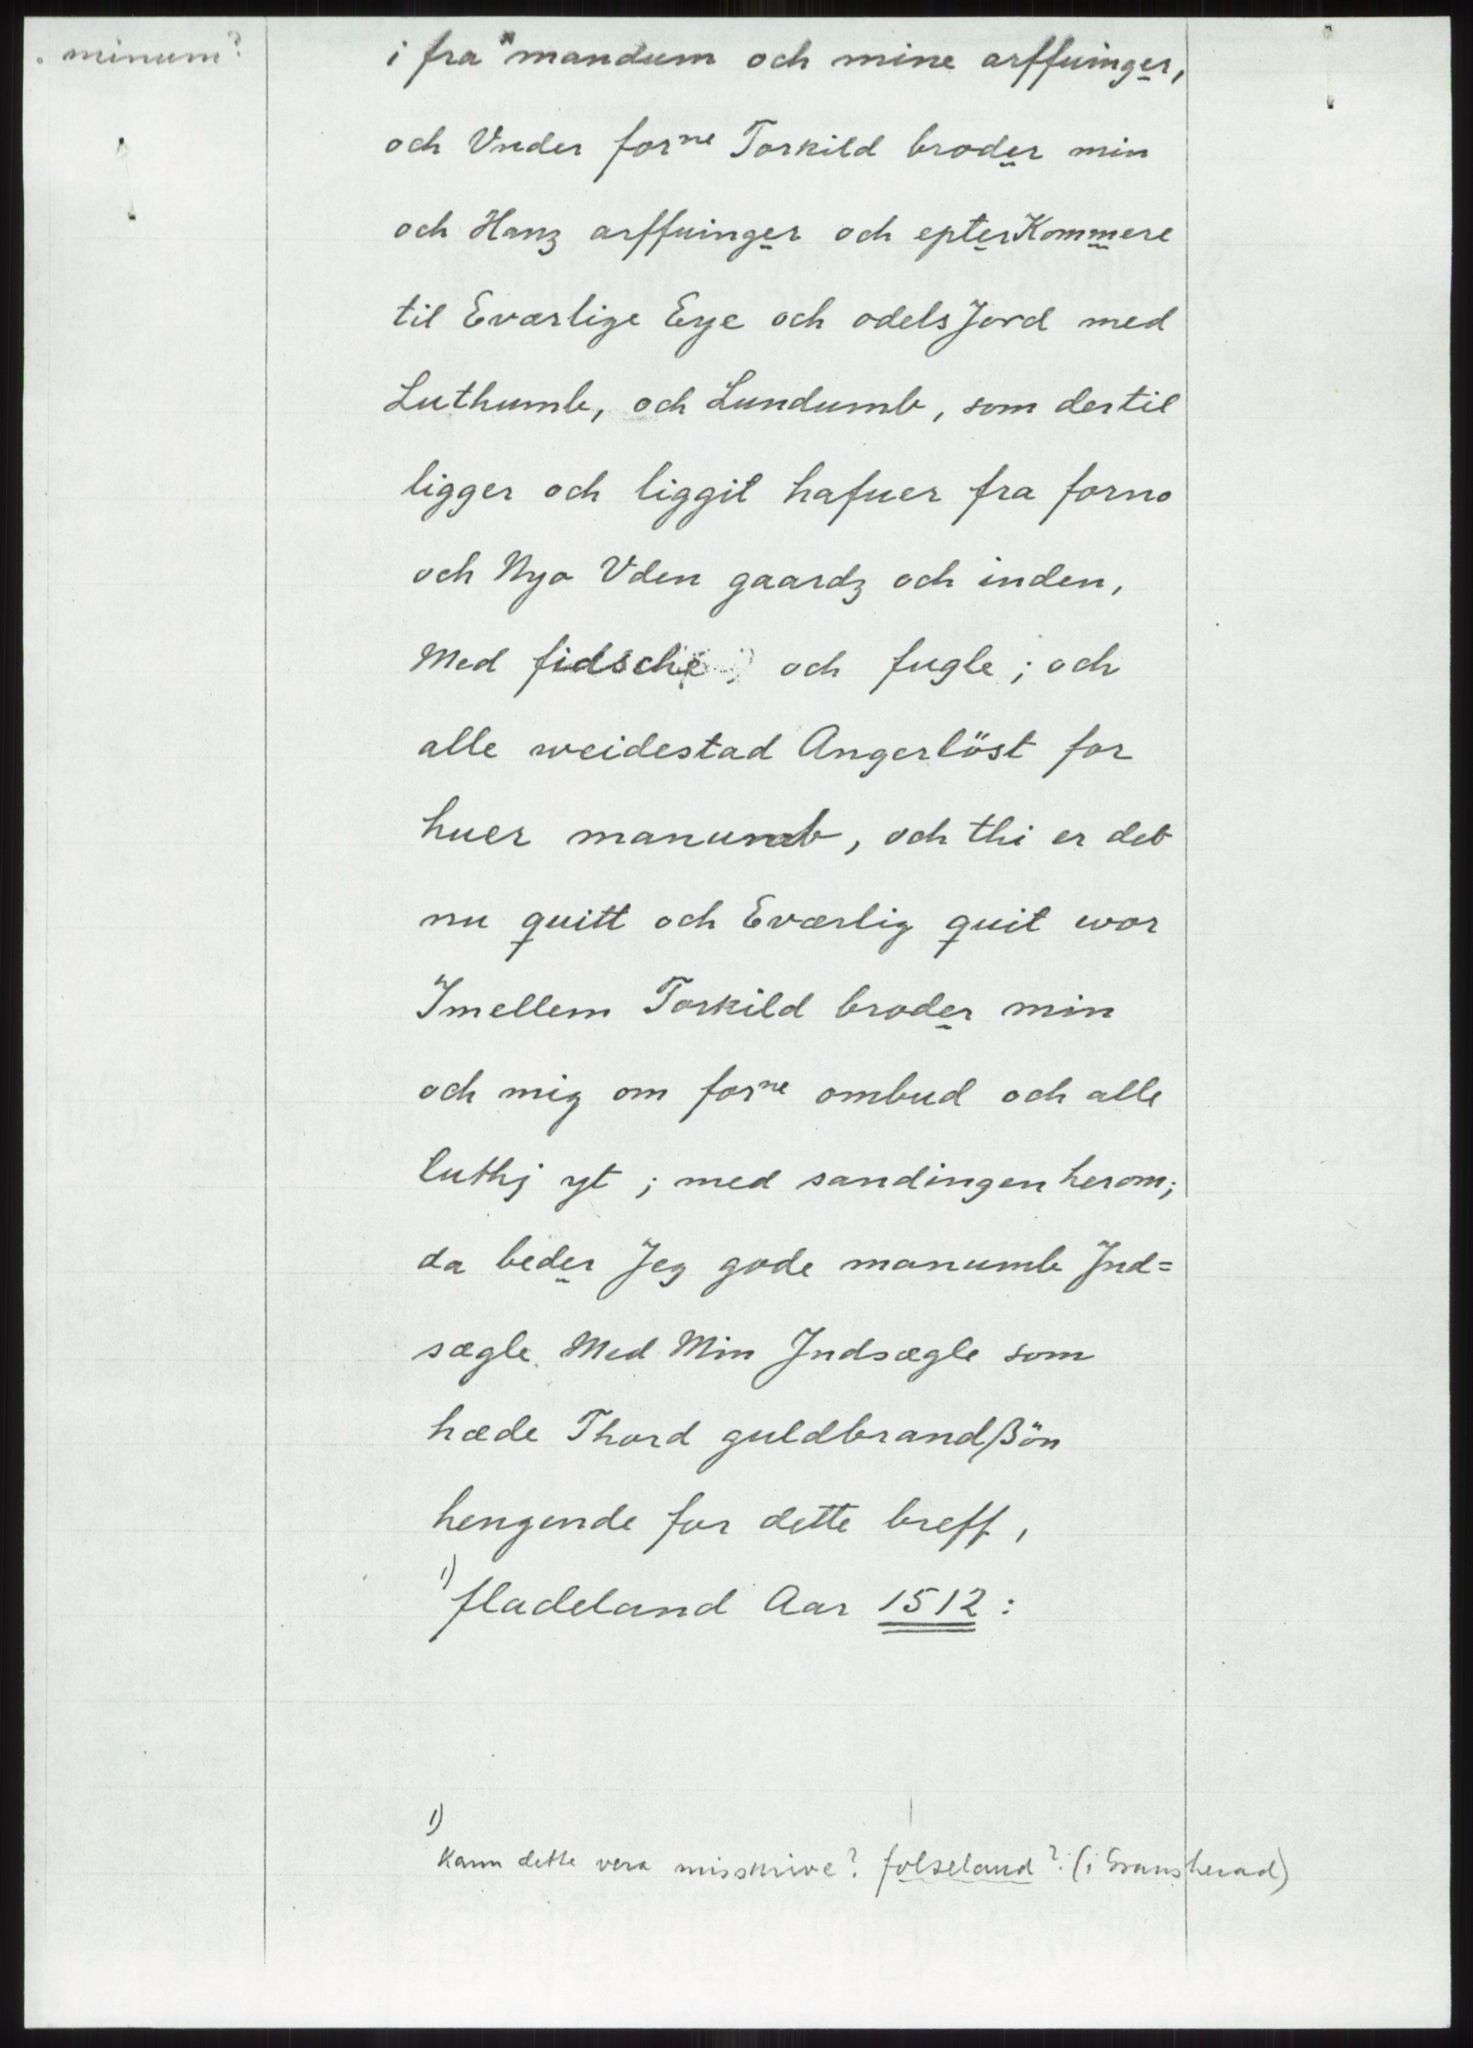 . minum?
i fra * mandum och mine arffuinger,
och Vnder forne Torkild broder min
och Hanz arffuinger och epterKommere
til Eværlige Eye och odelsJord med
Luthumb, och Lundumb, som dertil
ligger och liggit hafuer fra forno
och Nyo Vden gaardz och inden,
Med fidsche och fugle; och
alle weidestad Angerlöst for
huer manumb, och thi er det
nu quitt och Eværlig quit wor
Imellem Torkild broder min
och mig om forne ombud och alle
luthj yt; med sandingen herom;
da beder Jeg gode manumb Ind=
sægle Med Min Indsægle som
hæde Thord guldbrandßön
hengende for dette breff,
1) fladeland Aar 1512:
1)
Kann dette vera misskrive? folseland? (i Gransherad)